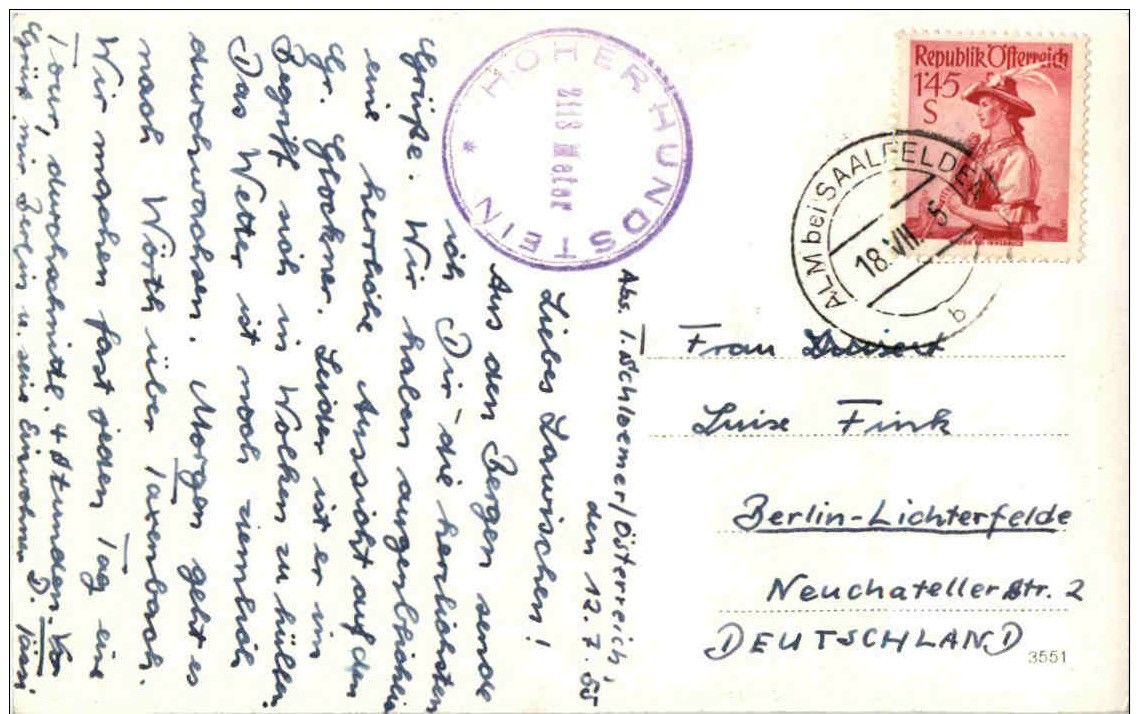 Abs. T. Schloemer/Österreich,
den 12.7.55
Liebes Lawischen!
Aus den Bergen sende
ich Dir die herzlichsten
Grüße. Wir haben augenblicklich
eine herrliche Aussicht auf den
Gr. Glockner. Leider ist er im
Begriff sich in Wolken zu hüllen
Das Wetter ist noch ziemlich
durchwachsen. Morgen geht es
nach Wörth über Taxenbach.
Wir machen fast jeden Tag eine
Tour, durchschnittl. 4 Stunden.
Grüß mir Berlin u. seine Einwohner D.
* HOTER HUNDSTEIN
2118 Meter
Republik Österreich
1'45
S
ALM bei SAALFELDEN
18.VIII. 5
b
Frau
Luise Fink
Berlin-Lichterfelde
Neuchateller Str. 2
DEUTSCHLAND
3551